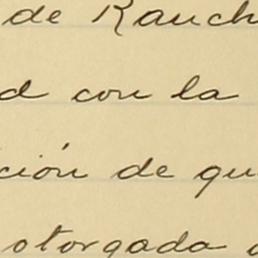 de Ranch
d con la
ción de qu
otorgada a